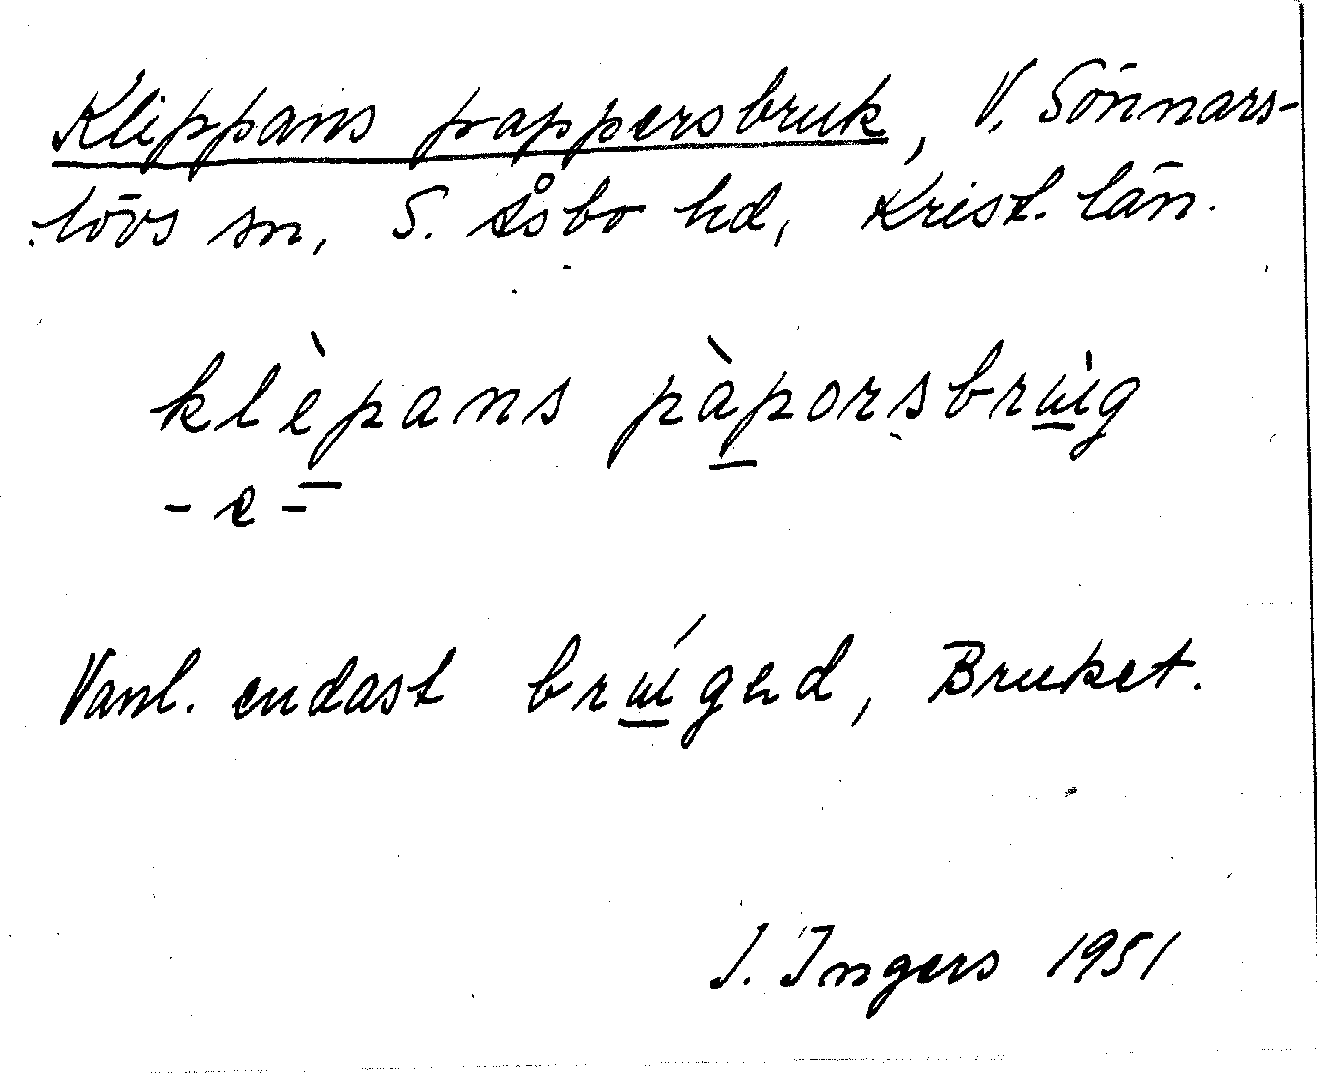 Klippans pappersbruk, V. Sönnars-
lövs sn, S. Åsbo hd, Krist. län.
klèpans pàporsbrùig
- e -
Vanl. endast brúiged, Bruket.
I. Ingers 1951